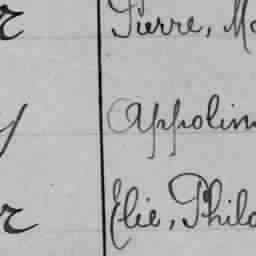 r Pierre, Ma
y Appolin
r Elie, Philo